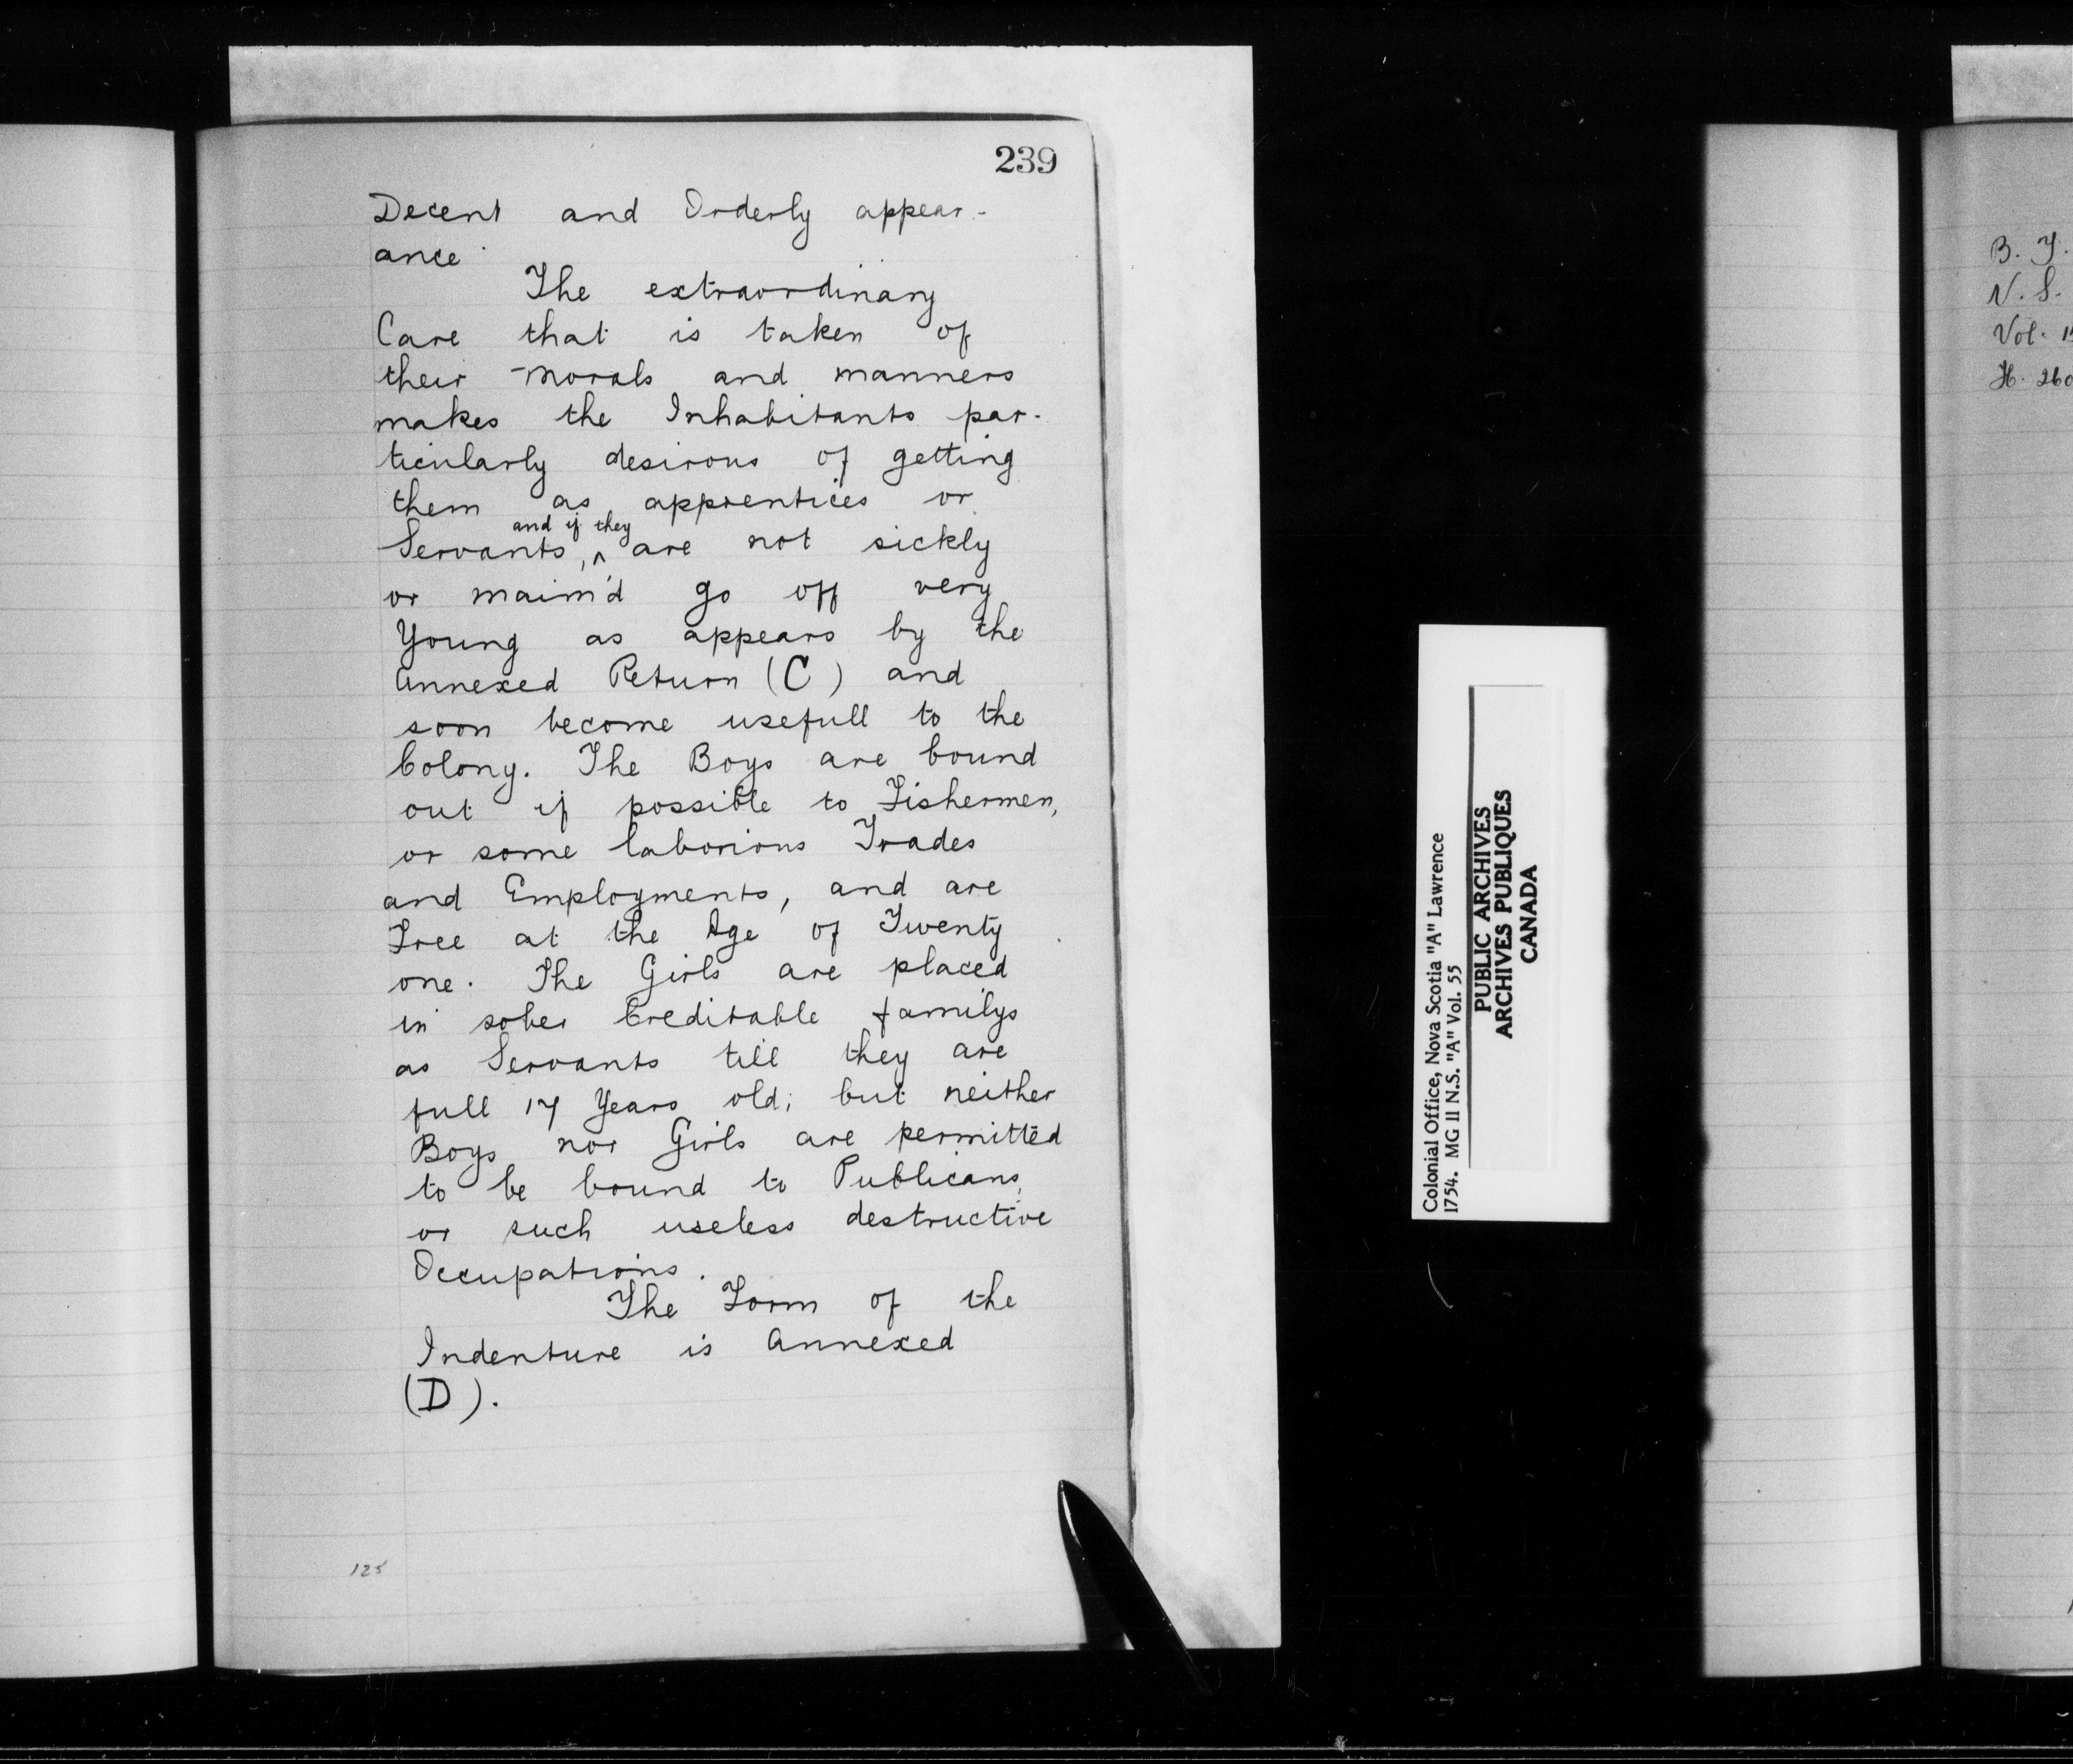 239
Decent and Orderly appear-
ance
The extraordinary
Care that is taken of
their Morals and manners
makes the Inhabitants par-
ticularly desirous of getting
them as apprentices or
and if they
Servants, ^ are not sickly
or maim'd go off very
Young as appears by the
Annexed Return (C) and
soon become usefull to the
Colony. The Boys are bound
out if possible to Fishermen,
or some laborious Trades
and Employments, and are
Free at the Age of Twenty
one. The Girls are placed
in sober Creditable familys
as Servants till they are
full 17 Years old; but neither
Boys nor Girls are permitted
to be bound to Publicans,
or such useless destructive
Occupations.
The Form of the
Indenture is Annexed
(D).
125
Colonial Office, Nova Scotia "A" Lawrence
1754. MG 11 N.S. "A" Vol. 55
PUBLIC ARCHIVES
ARCHIVES PUBLIQUES
CANADA
B. T.
N. S.
Vol. 15
H. 260